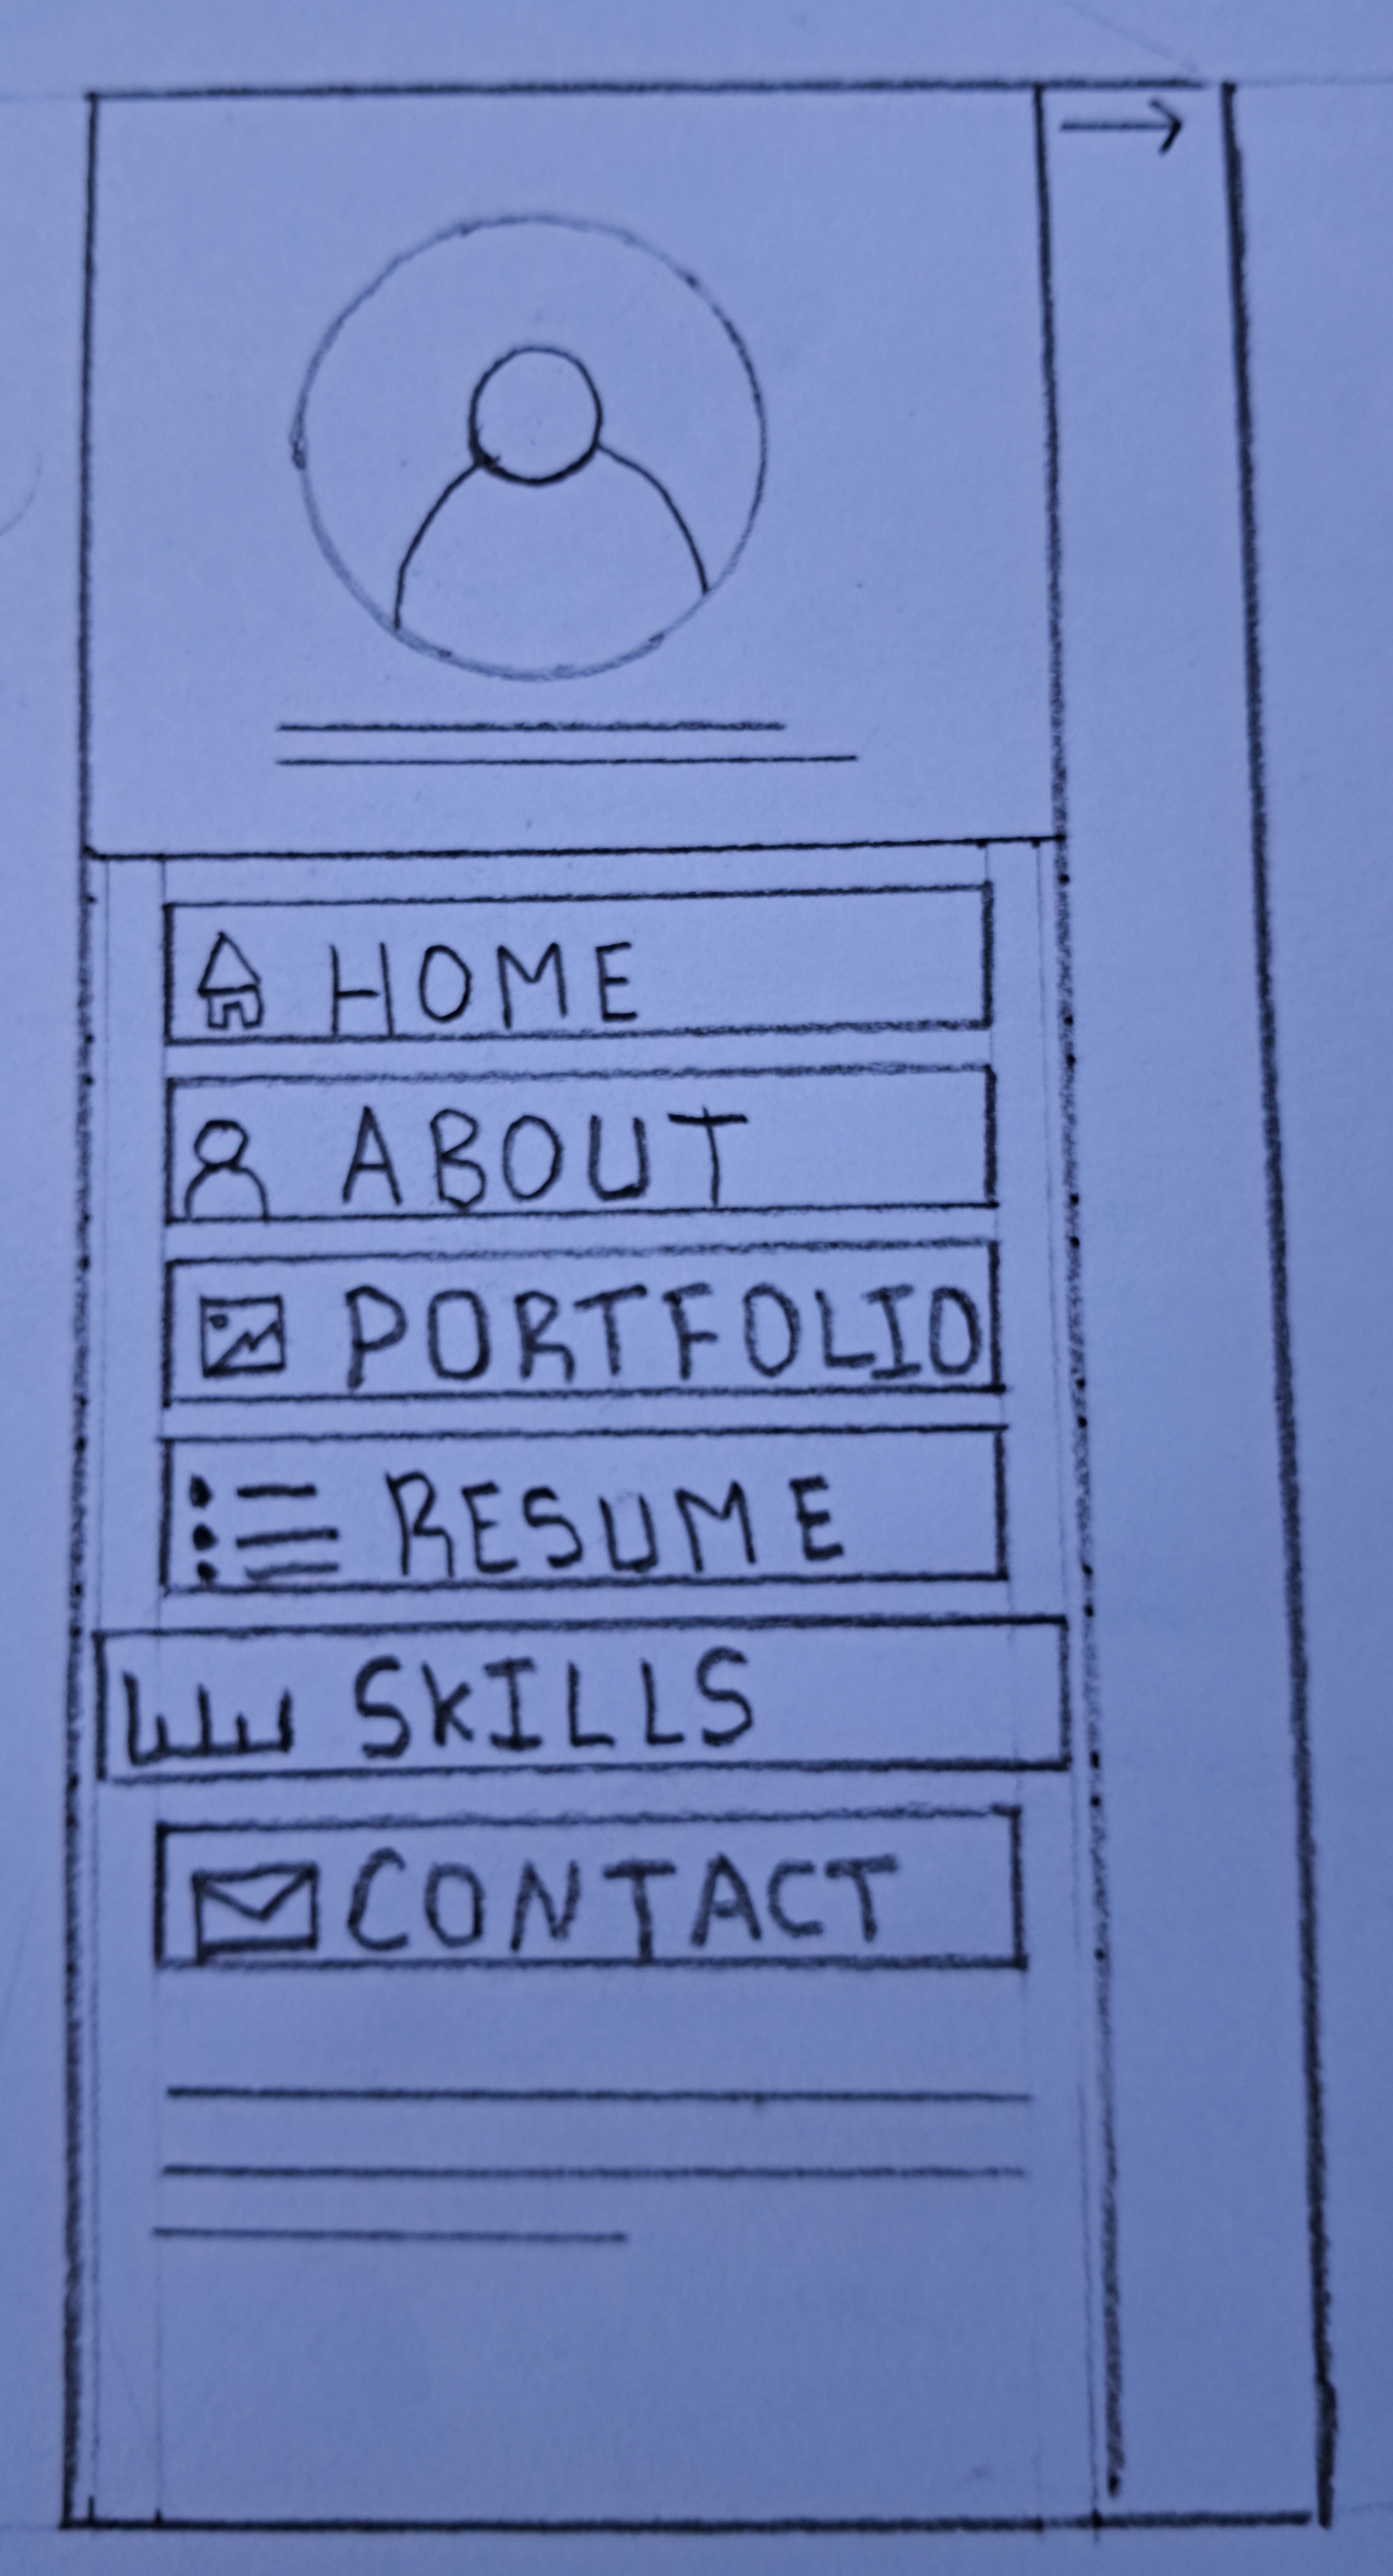 HOME
ABOUT
PORTFOLIO
RESUME
SKILLS
CONTACT